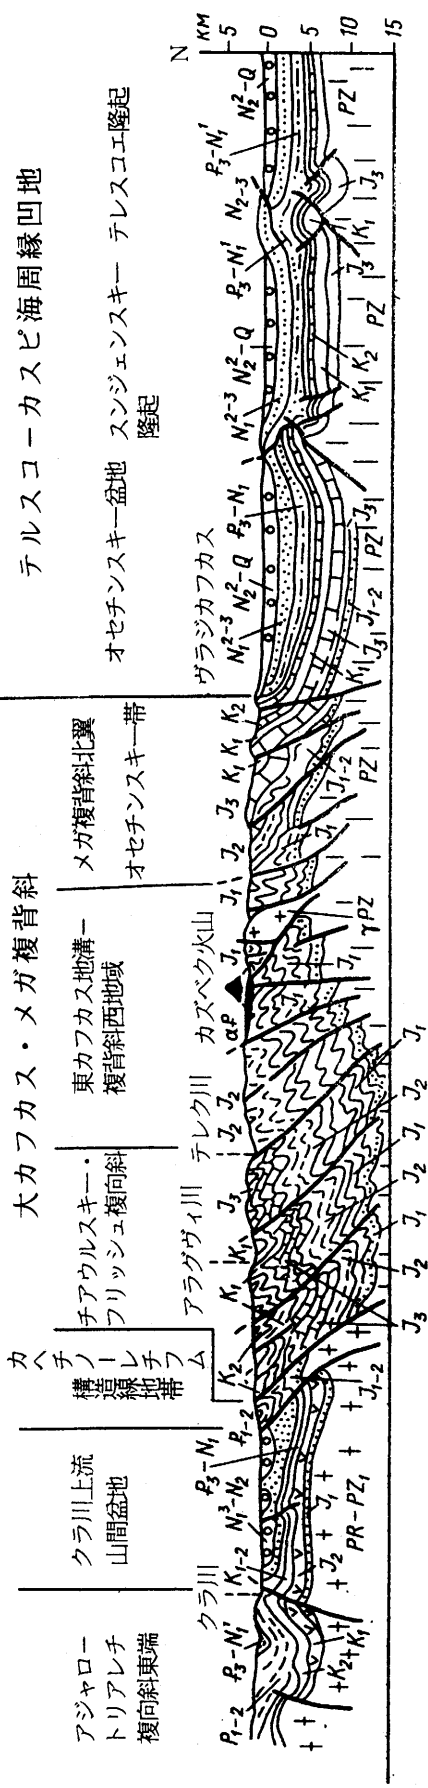 大カフカス・メガ複背斜
テルスコーカスピ海周縁凹地
アジャロー
トリアレチ
複向斜東端
クラ川上流
山間盆地
カヘチノーレチフム
構造線地帯
チアウルスキー・
フリッシュ複向斜
東カフカス地溝ー
複背斜西地域
メガ複背斜北翼
オセチンスキー帯
オセチンスキー盆地
スンジェンスキー
隆起
テレスコエ隆起
クラ川
アラグヴィ川
テレク川
カズベク火山
ヴラジカフカス
N
KM
5
0
5
10
15
P₁₋₂
P₃-N₁¹
K₁₋₂
N₁³-N₂
P₃-N₁
P₁₋₂
K₂
K₁
K₁
J₃
J₂
J₂
αP
J₁
J₁
J₂
J₃
K₁
K₁
K₂
N₁²⁻³
N₂²-Q
P₃-N₁
N₁²⁻³
N₂²-Q
P₃-N₁¹
N₂₋₃
P₃-N₁¹
N₂²-Q
+K₂+K₁
J₂
J₁
PR-PZ₁
J₁₋₂
J₃
J₂
J₁
J₂
J₁
J₂
J₁
J₁
J₁
γPZ
J₁
J₁₋₂
PZ
K₁
J₃
J₁₋₂
PZ
J₃
K₁
K₂
PZ
J₃
K₁
J₃
PZ